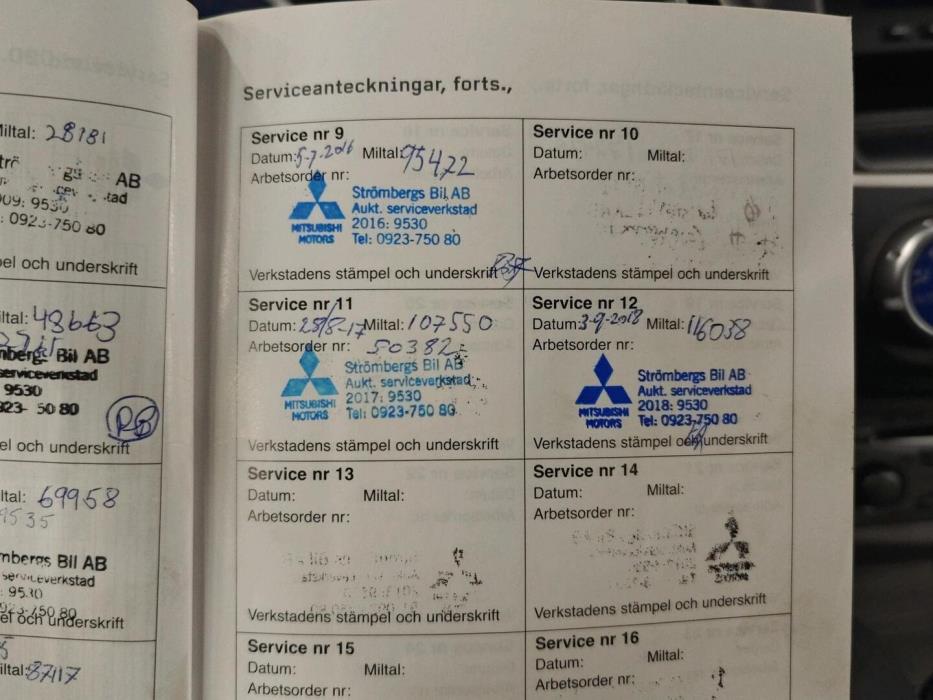 Miltal: 28181
AB
009: 9530
: 0923-750 80
el och underskrift
ltal: 48663
Bil AB
serviceverkstad
9530
50 80
RB
el och underskrift
ltal: 69958
9535
mbergs Bil AB
serviceverkstad
: 9530
0923-750 80
el och underskrift
iltal: 87117
Serviceanteckningar, forts.,
Service nr 9
Datum: 5-7-2016 Miltal: 95472
Arbetsorder nr:
MITSUBISHI
MOTORS
Strömbergs Bil AB
Aukt. serviceverkstad
2016: 9530
Tel: 0923-750 80
Verkstadens stämpel och underskrift
Service nr 10
Datum: Miltal:
Arbetsorder nr:
Verkstadens stämpel och underskrift
Service nr 11
Datum: 28/8-17 Miltal: 107550
Arbetsorder nr: 50382
MITSUBISHI
MOTORS
Strömbergs Bil AB
Aukt. serviceverkstad
2017: 9530
Tel: 0923-750 80
Verkstadens stämpel och underskrift
Service nr 12
Datum: 3-9-2018 Miltal: 116058
Arbetsorder nr:
MITSUBISHI
MOTORS
Strömbergs Bil AB
Aukt. serviceverkstad
2018: 9530
Tel: 0923-750 80
Verkstadens stämpel och underskrift
Service nr 13
Datum: Miltal:
Arbetsorder nr:
Verkstadens stämpel och underskrift
Service nr 14
Datum: Miltal:
Arbetsorder nr:
Verkstadens stämpel och underskrift
Service nr 15
Datum: Miltal:
Arbetsorder nr:
Service nr 16
Datum: Miltal:
Arbetsorder nr: